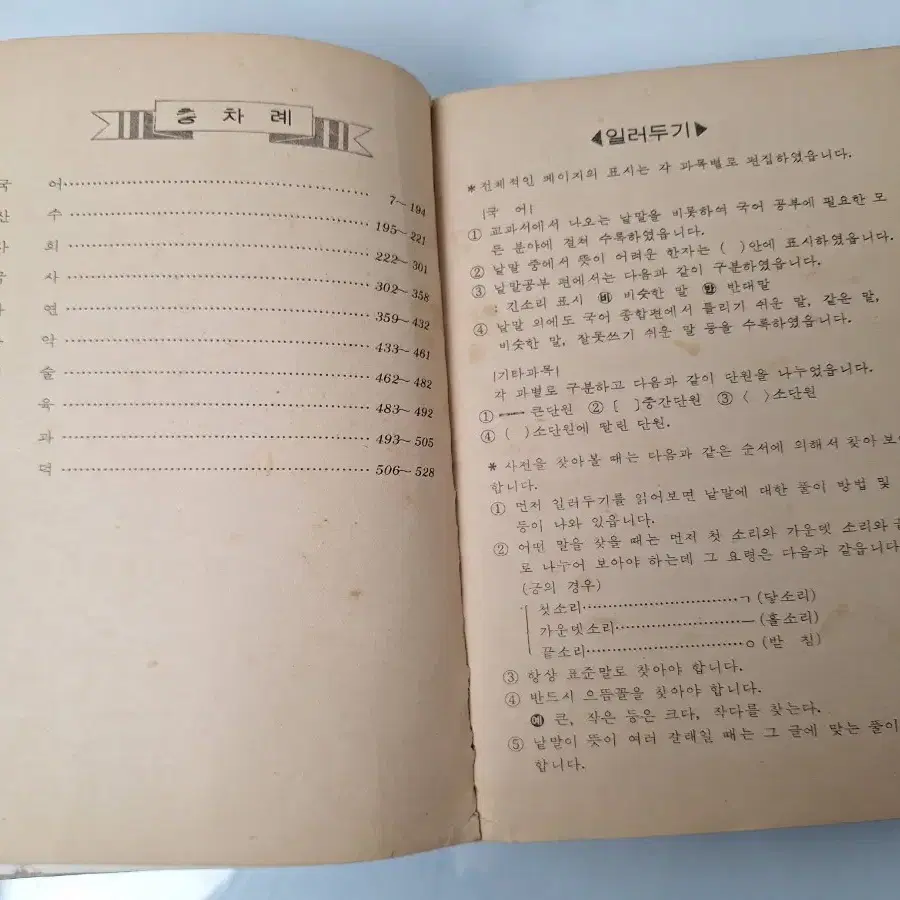 총 차 례
국 어 7~194
산 수 195~221
회 222~301
사 302~358
연 359~432
악 433~461
술 462~482
육 483~492
과 493~505
덕 506~528
◀일러두기▶
* 전체적인 페이지의 표시는 각 과목별로 편집하였읍니다.
|국 어|
① 교과서에서 나오는 낱말을 비롯하여 국어 공부에 필요한 모
든 분야에 걸쳐 수록하였읍니다.
② 낱말 중에서 뜻이 어려운 한자는 ( )안에 표시하였읍니다.
③ 낱말공부 편에서는 다음과 같이 구분하였읍니다.
: 긴소리 표시 ㉥ 비슷한 말 ㉫ 반대말
④ 낱말 외에도 국어 종합편에서 틀리기 쉬운 말, 같은 말,
비슷한 말, 잘못쓰기 쉬운 말 등을 수록하였읍니다.
|기타과목|
각 과별로 구분하고 다음과 같이 단원을 나누었읍니다.
① ━━ 큰단원 ② [ ]중간단원 ③ < >소단원
④ ( )소단원에 딸린 단원.
* 사전을 찾아볼 때는 다음과 같은 순서에 의해서 찾아 보
합니다.
① 먼저 일러두기를 읽어보면 낱말에 대한 풀이 방법 및
등이 나와 있읍니다.
② 어떤 말을 찾을 때는 먼저 첫 소리와 가운뎃 소리와
로 나누어 보아야 하는데 그 요령은 다음과 같읍니다
(긍의 경우)
첫소리 ㄱ (닿소리)
가운뎃소리 ㅡ (홀소리)
끝소리 ㅇ (받 침)
③ 항상 표준말로 찾아야 합니다.
④ 반드시 으뜸꼴을 찾아야 합니다.
예 큰, 작은 등은 크다, 작다를 찾는다.
⑤ 낱말이 뜻이 여러 갈래일 때는 그 글에 맞는 풀이
합니다.